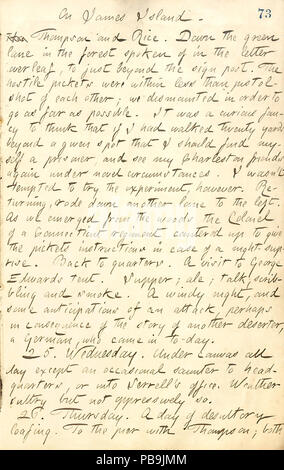 On James Island.
73
Thompson and Rice. Down the green
lane in the forest spoken of in the letter
overleaf, to just beyond the sign post. The
hostile pickets were within less than pistol-
shot of each other; we dismounted in order to
go as far as possible. It was a curious fan-
cy to think that if I had walked twenty yards
beyond a given spot that I should find my-
self a prisoner, and see my Charleston friends
again under novel circumstances. I wasn't
tempted to try the experiment, however. Re-
turning, rode down another lane to the left.
As we emerged from the woods the Colonel
of a Connecticut regiment cantered up to give
the pickets instructions in case of a night sur-
prise. Back to quarters. A visit to George
Edwards tent. Supper; ale; talk, scrib-
bling and smoke. A windy night, and
some anticipations of an attack, perhaps
in consequence of the story of another deserter,
a German, who came in to-day.
25. Wednesday. Under canvas all
day except an occasional saunter to head-
quarters, or into Serrell's office. Weather
sultry but not oppressively so.
26. Thursday. A day of desultory
loafing. To the pier with Thompson; both
alamy
Image ID: PB9JMM
www.alamy.com